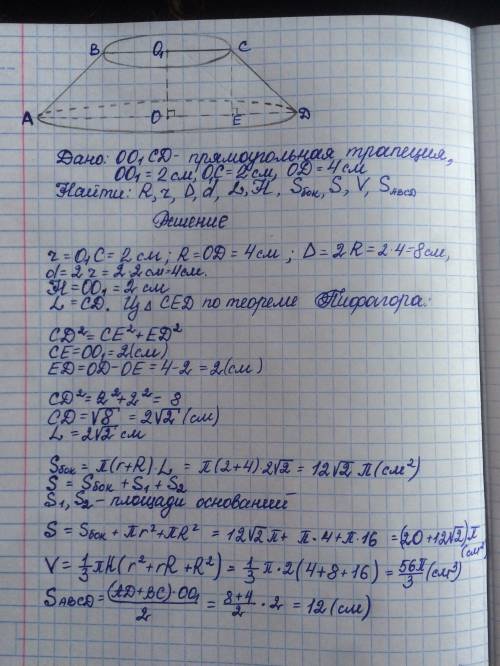 B O₁ C
A O E D
Дано: OO₁CD - прямоугольная трапеция,
OO₁ = 2 см, O₁C = 2 см, OD = 4 см
Найти: R, r, D, d, L, H, Sбок, S, V, SABCD
Решение
r = O₁C = 2 см; R = OD = 4 см; D = 2R = 2·4 = 8 см,
d = 2r = 2·2 см = 4 см.
H = OO₁ = 2 см
L = CD. Из △ CED по теореме Пифагора:
CD² = CE² + ED²
CE = OO₁ = 2 (см)
ED = OD - OE = 4 - 2 = 2 (см)
CD² = 2² + 2² = 8
CD = √8 = 2√2 (см)
L = 2√2 см
Sбок = π(r+R)·L = π(2+4)2√2 = 12√2 π (см²)
S = Sбок + S₁ + S₂
S₁, S₂ - площади оснований
S = Sбок + πr² + πR² = 12√2π + π·4 + π·16 = (20 + 12√2)π (см²)
V = 1/3 πH(r² + rR + R²) = 1/3 π·2(4+8+16) = 56π/3 (см³)
SABCD = (AD+BC)·OO₁/2 = 8+4/2 · 2 = 12 (см)